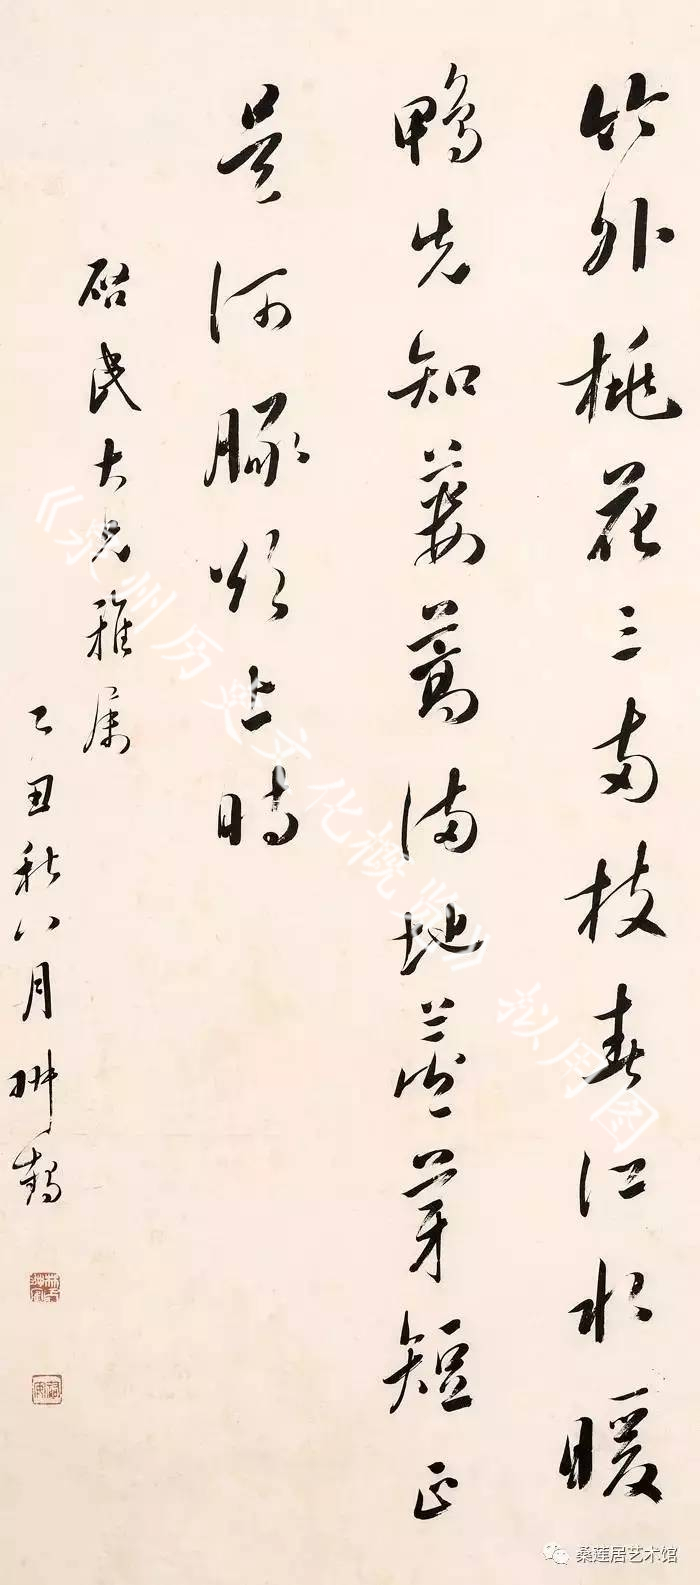 竹外桃花三两枝春江水暖
鸭先知蒌蒿满地芦芽短正
是河豚欲上时
启民大兄雅属
乙丑秋八月翀鹤
《泉州历史文化概览》拟用图
桑莲居艺术馆